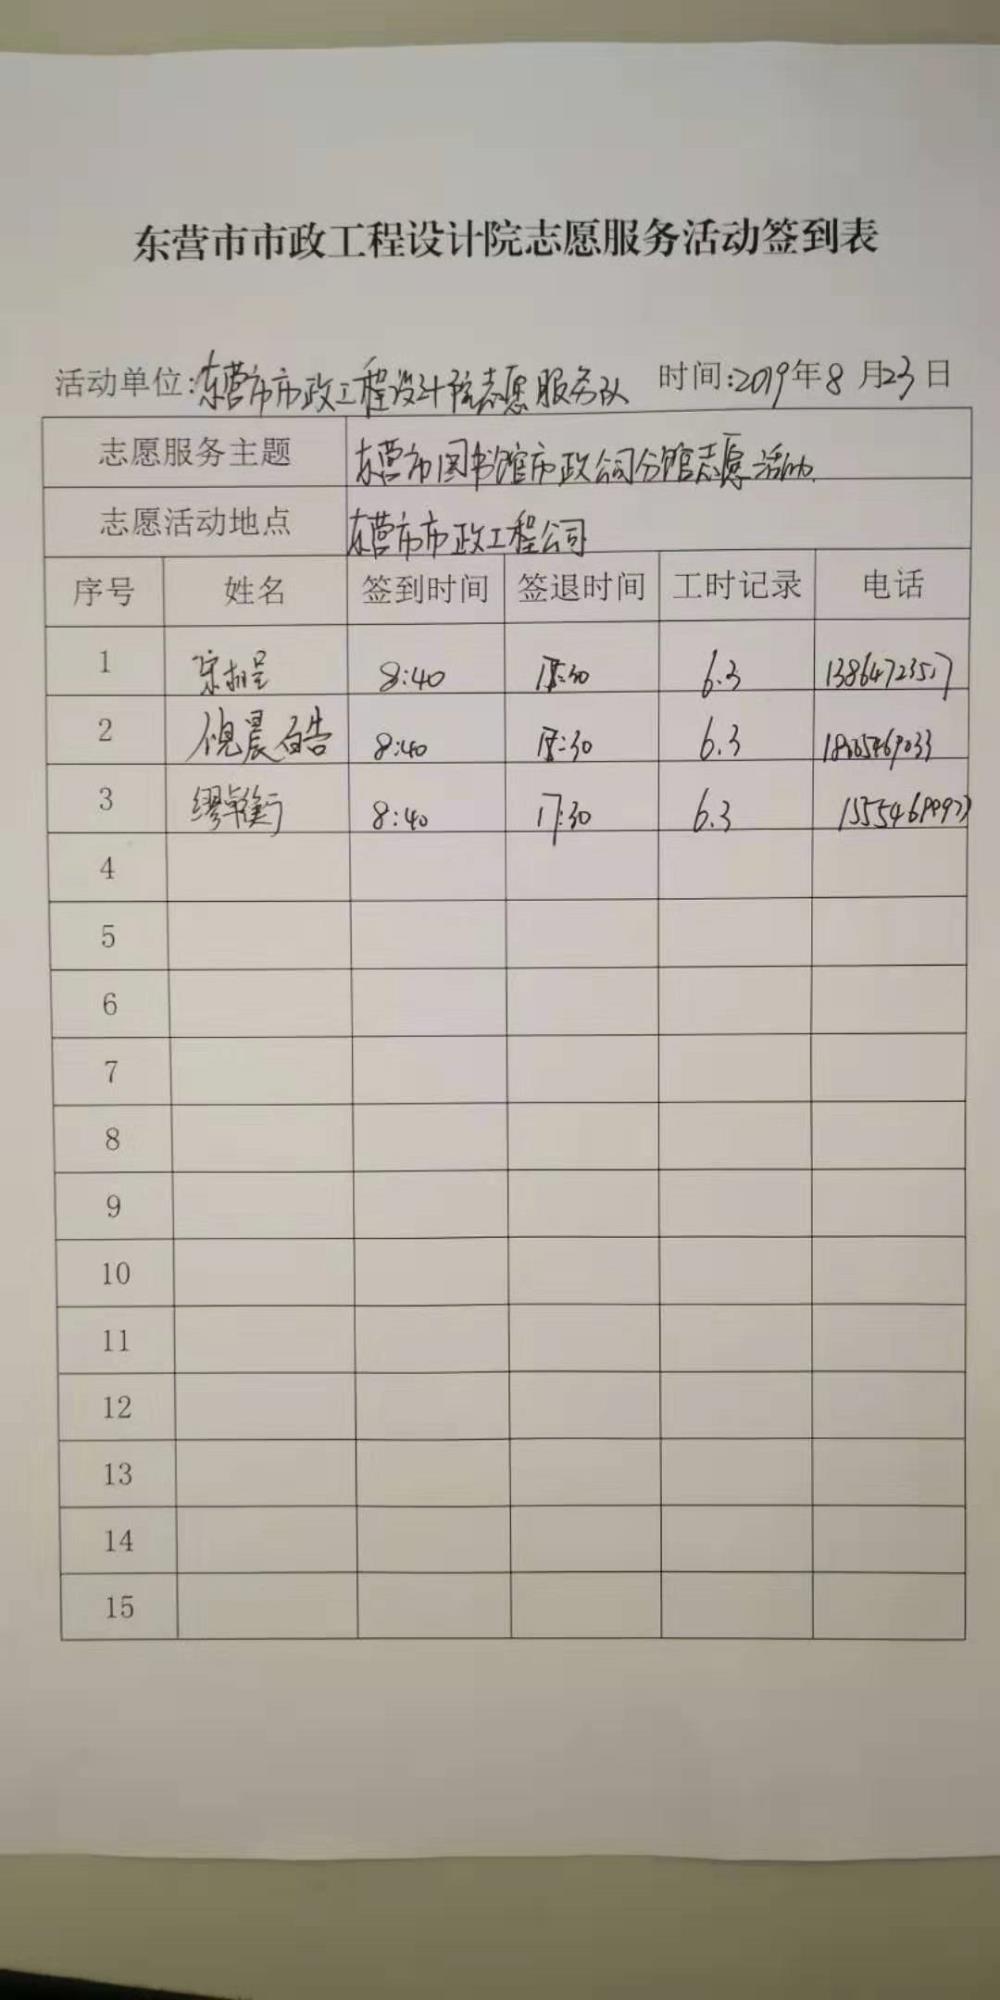 东营市市政工程设计院志愿服务活动签到表
活动单位:东营市市政工程设计院志愿服务队 时间:2019年8月23日
志愿服务主题 东营市图书馆市政公司分馆志愿活动.
志愿活动地点 东营市市政工程公司
序号 姓名 签到时间 签退时间 工时记录 电话
1 8:40 6.3
2 倪晨皓 8:40 6.3
3 缪卓衡 8:40 17:30 6.3
4
5
6
7
8
9
10
11
12
13
14
15